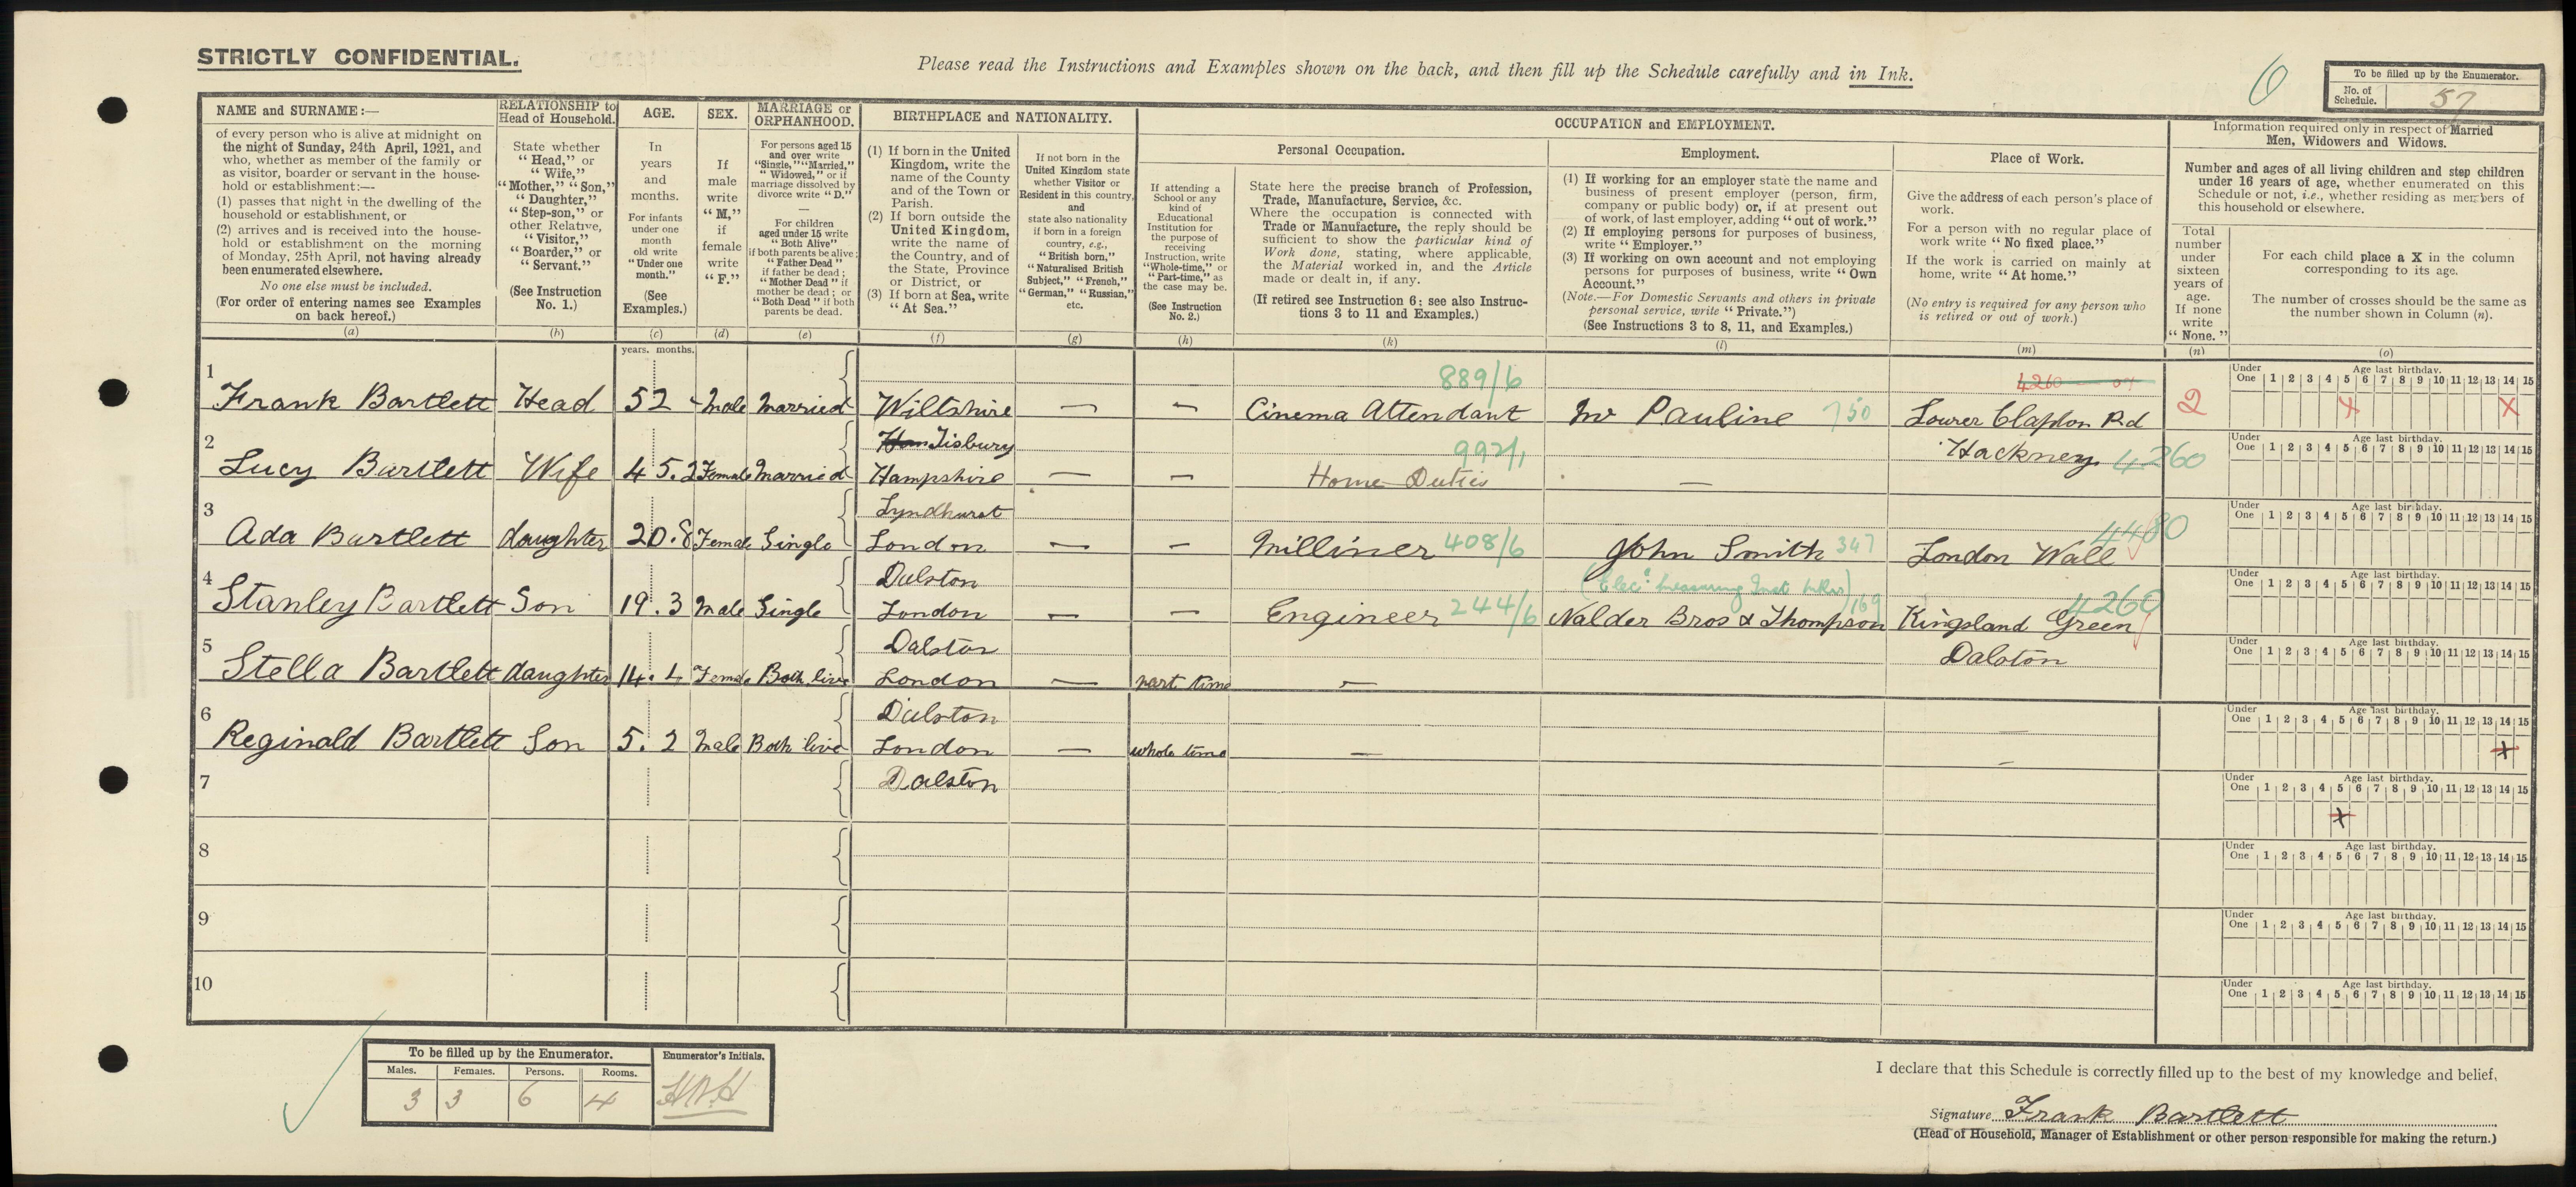 STRICTLY CONFIDENTIAL.
Please read the Instructions and Examples shown on the back, and then fill up the Schedule carefully and in Ink.
6
To be filled up by the Enumerator.
No. of Schedule. 57
NAME and SURNAME:—
of every person who is alive at midnight on
the night of Sunday, 24th April, 1921, and
who, whether as member of the family or
as visitor, boarder or servant in the house-
hold or establishment:—
(1) passes that night in the dwelling of the
household or establishment, or
(2) arrives and is received into the house-
hold or establishment on the morning
of Monday, 25th April, not having already
been enumerated elsewhere.
No one else must be included.
(For order of entering names see Examples
on back hereof.)
(a)
RELATIONSHIP to
Head of Household.
State whether
"Head," or
"Wife,"
"Mother," "Son,"
"Daughter,"
"Step-son," or
other Relative,
"Visitor,"
"Boarder," or
"Servant."
(See Instruction
No. 1.)
(b)
AGE.
In
years
and
months.
For infants
under one
month
old write
"Under one
month."
(See
Examples.)
(c)
SEX.
If
male
write
"M,"
if
female
write
"F."
(d)
MARRIAGE or
ORPHANHOOD.
For persons aged 15
and over write
"Single," "Married,"
"Widowed," or if
marriage dissolved by
divorce write "D."
—
For children
aged under 15 write
"Both Alive"
if both parents be alive;
"Father Dead"
if father be dead;
"Mother Dead" if
mother be dead; or
"Both Dead" if both
parents be dead.
(e)
BIRTHPLACE and NATIONALITY.
(1) If born in the United
Kingdom, write the
name of the County
and of the Town or
Parish.
(2) If born outside the
United Kingdom,
write the name of
the Country, and of
the State, Province
or District, or
(3) If born at Sea, write
"At Sea."
(f)
If not born in the
United Kingdom state
whether Visitor or
Resident in this country,
and
state also nationality
if born in a foreign
country, e.g.,
"British born,"
"Naturalised British
Subject," "French,"
"German," "Russian,"
etc.
(g)
OCCUPATION and EMPLOYMENT.
If attending a
School or any
kind of
Educational
Institution for
the purpose of
receiving
Instruction, write
"Whole-time," or
"Part-time," as
the case may be.
(See Instruction
No. 2.)
(h)
Personal Occupation.
State here the precise branch of Profession,
Trade, Manufacture, Service, &c.
Where the occupation is connected with
Trade or Manufacture, the reply should be
sufficient to show the particular kind of
Work done, stating, where applicable,
the Material worked in, and the Article
made or dealt in, if any.
(If retired see Instruction 6; see also Instruc-
tions 3 to 11 and Examples.)
(k)
Employment.
(1) If working for an employer state the name and
business of present employer (person, firm,
company or public body) or, if at present out
of work, of last employer, adding "out of work."
(2) If employing persons for purposes of business,
write "Employer."
(3) If working on own account and not employing
persons for purposes of business, write "Own
Account."
(Note.—For Domestic Servants and others in private
personal service, write "Private.")
(See Instructions 3 to 8, 11, and Examples.)
(l)
Place of Work.
Give the address of each person's place of
work.
For a person with no regular place of
work write "No fixed place."
If the work is carried on mainly at
home, write "At home."
(No entry is required for any person who
is retired or out of work.)
(m)
Information required only in respect of Married
Men, Widowers and Widows.
Number and ages of all living children and step children
under 16 years of age, whether enumerated on this
Schedule or not, i.e., whether residing as members of
this household or elsewhere.
Total
number
under
sixteen
years of
age.
If none
write
"None."
(n)
For each child place a X in the column
corresponding to its age.
The number of crosses should be the same as
the number shown in Column (n).
(o)
years. months.
Under One Age last birthday. 1 2 3 4 5 6 7 8 9 10 11 12 13 14 15
1 Frank Bartlett Head 52 Male Married Wiltshire — — Cinema Attendant 889/6 Mr Pauline 750 4260 Lower Clapton Rd 2 X X
Tisbury Hackney 4260
Under One Age last birthday. 1 2 3 4 5 6 7 8 9 10 11 12 13 14 15
2 Lucy Bartlett Wife 45.2 Female Married Hampshire — — 992/1 Home Duties —
Lyndhurst
Under One Age last birthday. 1 2 3 4 5 6 7 8 9 10 11 12 13 14 15
3 Ada Bartlett daughter 20.8 Female Single London — — Milliner 408/6 John Smith 347 London Wall 4480
Dalston
Under One Age last birthday. 1 2 3 4 5 6 7 8 9 10 11 12 13 14 15
4 Stanley Bartlett Son 19.3 Male Single London — — Engineer 244/6 (Elec. Measuring Inst Mkrs) 169 Nalder Bros & Thompson Kingsland Green 4260
Dalston Dalston
Under One Age last birthday. 1 2 3 4 5 6 7 8 9 10 11 12 13 14 15
5 Stella Bartlett daughter 14.4 Female Both live London — part time —
Dalston
Under One Age last birthday. 1 2 3 4 5 6 7 8 9 10 11 12 13 14 15
6 Reginald Bartlett Son 5.2 Male Both live London — whole time — X
Dalston
Under One Age last birthday. 1 2 3 4 5 6 7 8 9 10 11 12 13 14 15
7 X
Under One Age last birthday. 1 2 3 4 5 6 7 8 9 10 11 12 13 14 15
8
Under One Age last birthday. 1 2 3 4 5 6 7 8 9 10 11 12 13 14 15
9
Under One Age last birthday. 1 2 3 4 5 6 7 8 9 10 11 12 13 14 15
10
To be filled up by the Enumerator.
Males. Females. Persons. Rooms.
3 3 6 4
Enumerator's Initials.
I declare that this Schedule is correctly filled up to the best of my knowledge and belief,
Signature Frank Bartlett
(Head of Household, Manager of Establishment or other person responsible for making the return.)